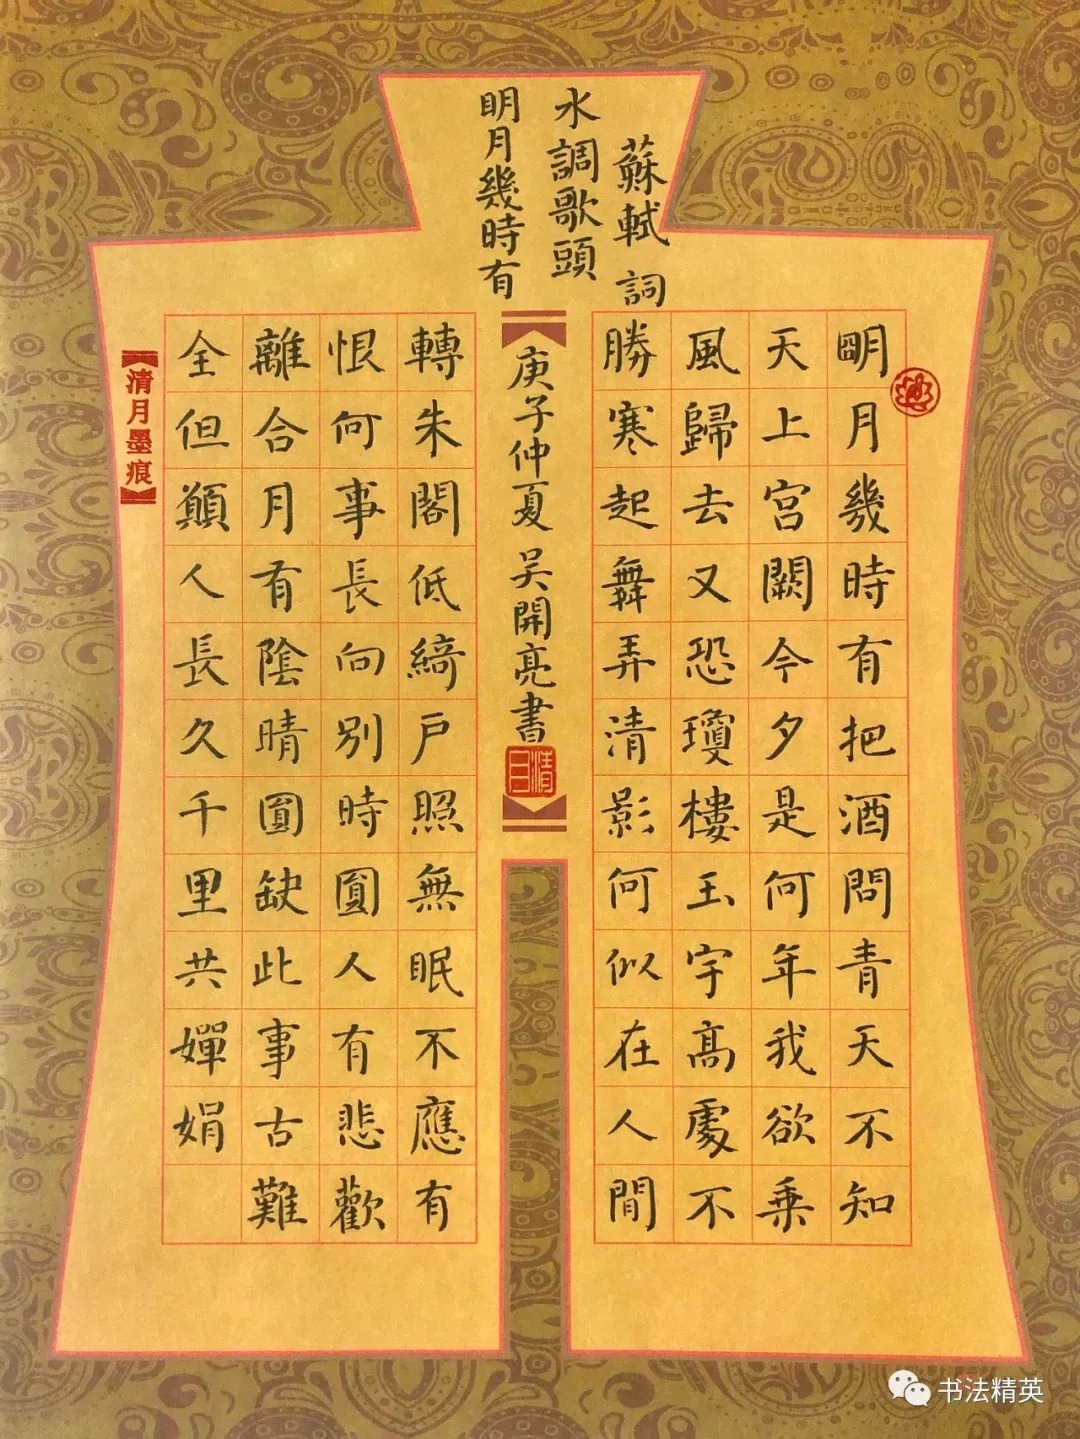 蘇軾 詞
水調歌頭
明月幾時有
明月幾時有把酒問青天不知
天上宮闕今夕是何年我欲乘
風歸去又恐瓊樓玉宇高處不
勝寒起舞弄清影何似在人間
轉朱閣低綺戶照無眠不應有
恨何事長向別時圓人有悲歡
離合月有陰晴圓缺此事古難
全但願人長久千里共嬋娟
庚子仲夏 吳開亮書
清月
【清月墨痕】
书法精英